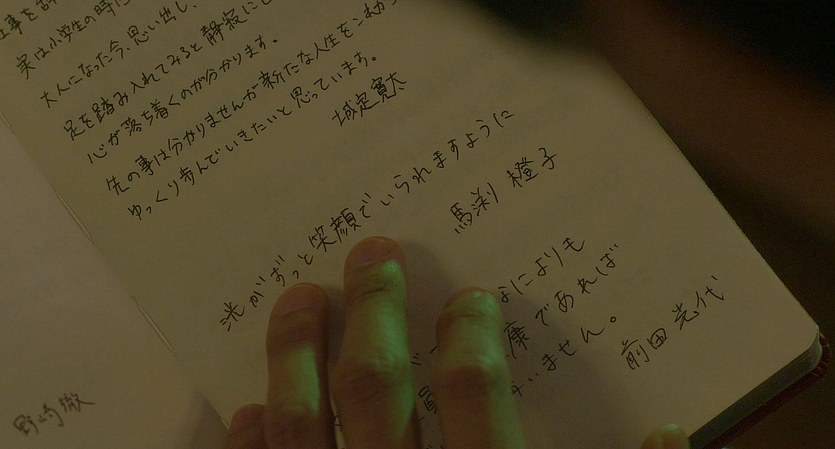 仕事を辞
実は小学生の時に
大人になった今、思い出し、
足を踏み入れてみると静寂に
心が落ち着くのが分かります。
先の事は分かりませんが新たな人生をこれから
ゆっくり歩んでいきたいと思っています。
城定寛太
洸がずっと笑顔でいられますように
馬渕 橙子
なによりも
康であれば
いません。
前田光代
野崎徹